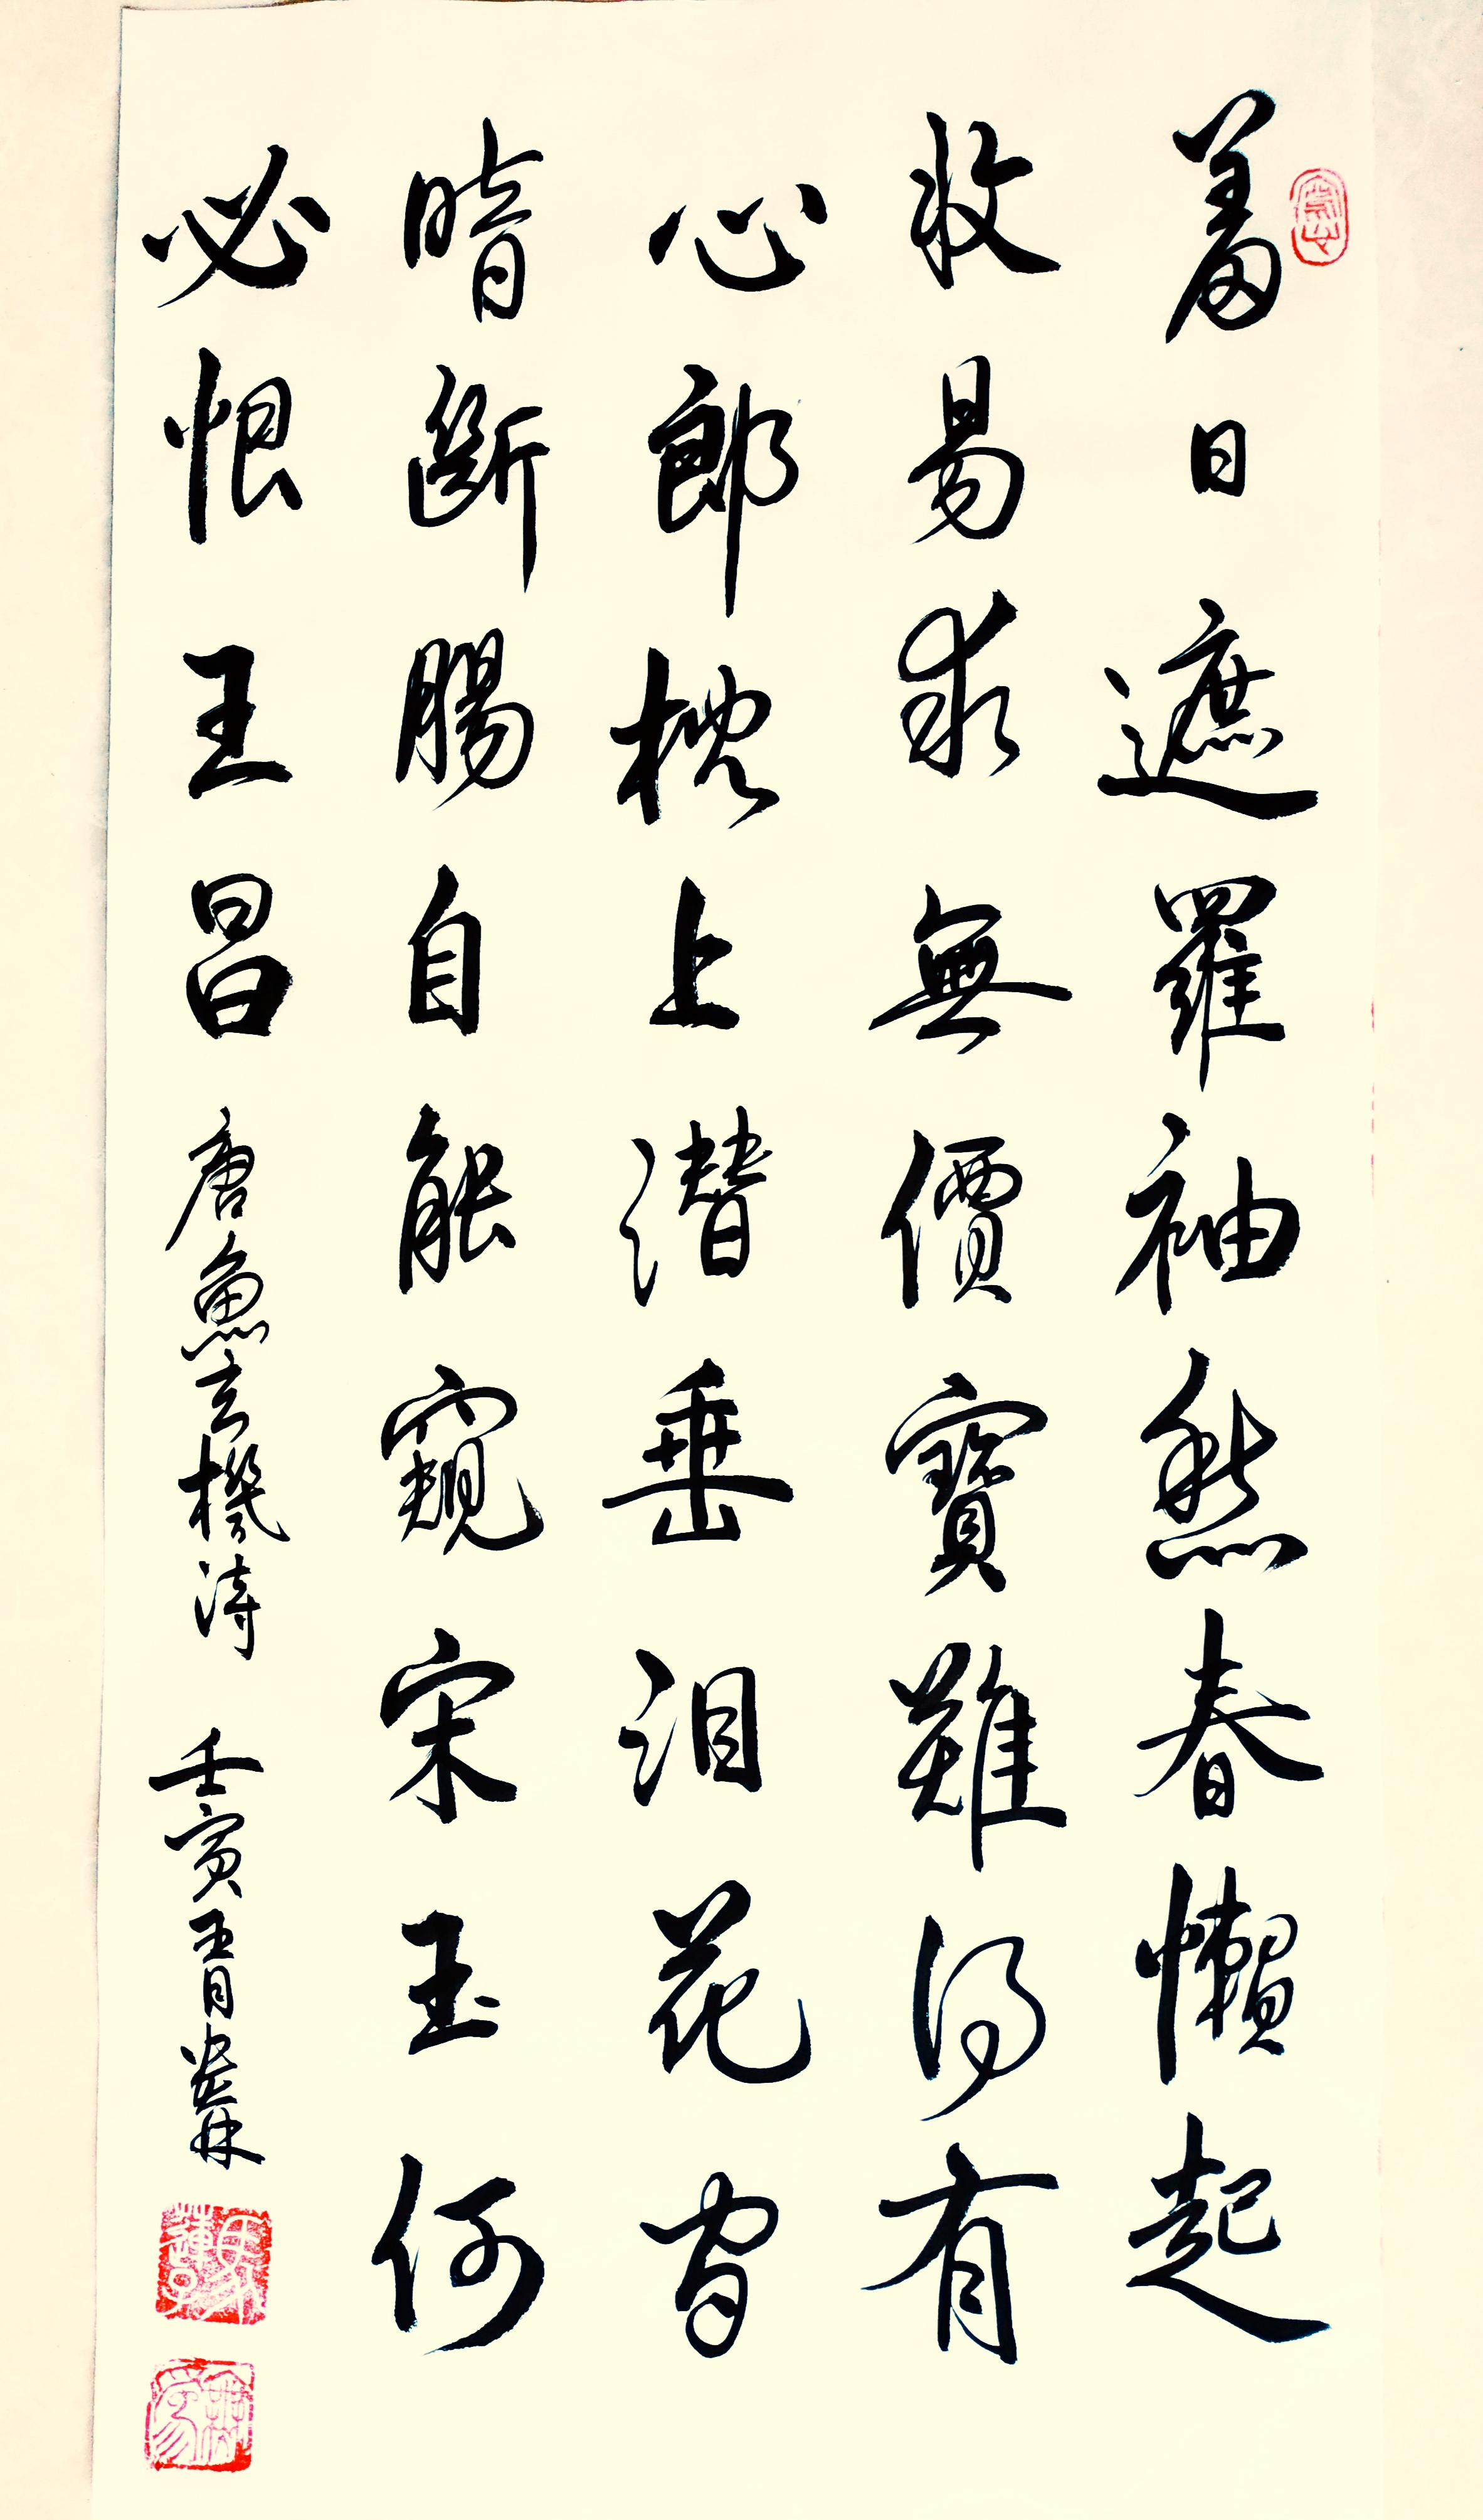 羞日遮羅袖愁春懶起
妝易求無價寶難得有
心郎枕上潜垂泪花間
暗斷腸自能窺宋玉何
必恨王昌 唐魚玄機詩 壬寅五月